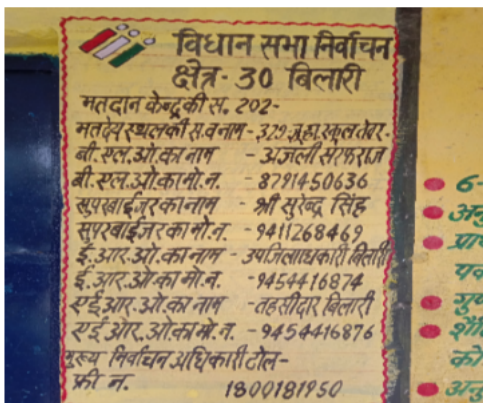 विधान सभा निर्वाचन
क्षेत्र - 30 बिलारी
मतदान केन्द्र की स. 202-
मतदेय स्थल की स. व नाम - 329 जू. हा. स्कूल तेवर-
बी. एल. ओ. का नाम - अंजली सरफराज
बी. एल. ओ. का मो. न. - 8791450636
सुपरवाईजर का नाम - श्री सुरेन्द्र सिंह
सुपरवाईजर का मो. न. - 9411268469
ई. आर. ओ. का नाम - उपजिलाधिकारी बिलारी
ई. आर. ओ. का मो. न. - 9454416874
एई आर. ओ. का नाम - तहसीदार बिलारी
एई ओर. ओ. का मो. न. - 9454416876
मुख्य निर्वाचन अधिकारी टोल-
फ्री न. 1800181950
6-